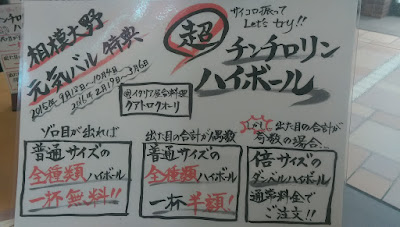 相模大野
元気バル 特典
2015年9月12日~10月4日
サイコロ振って
Let's try!!
超
チンチロリン
ハイボール
イタリア宴会料理
クアトロクオーリ
ゾロ目が出れば
普通サイズの
全種類ハイボール
一杯無料!!
出た目の合計が偶数
普通サイズの
全種類ハイボール
一杯半額!
出た目の合計が
奇数の場合...
倍サイズの
ダンベルハイボール
通常料金で
ご注文!!